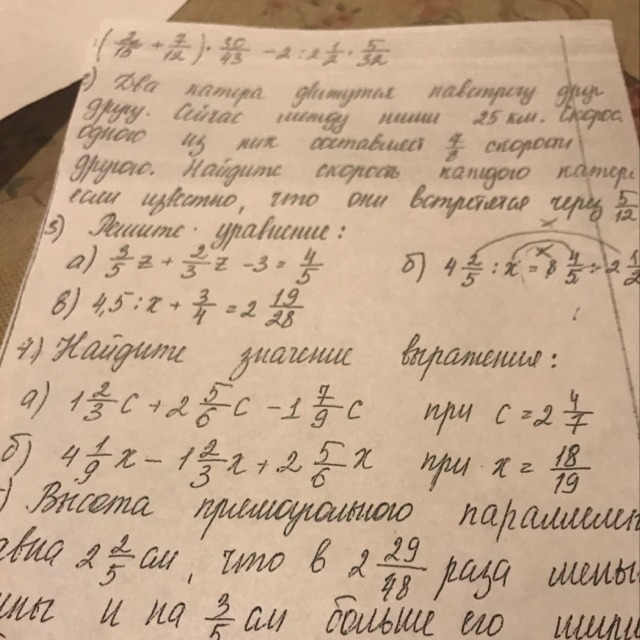 (3/10 + 7/12) · 30/43 - 2 : 2 1/2 · 5/32
) Два катера движутся навстречу друг
другу. Сейчас между ними 25 км. Скорос
одного из них составляет 7/8 скорости
другого. Найдите скорость каждого катер
если известно, что они встретятся через 5/12
3) Решите уравнение:
а) 3/5 z + 2/3 z - 3 = 4/5 б) 4 2/5 : x = 8 4/5 : 2 1/2
в) 4,5 : x + 3/4 = 2 19/28
4) Найдите значение выражения:
а) 1 2/3 c + 2 5/6 c - 1 7/9 c при c = 2 4/7
б) 4 1/9 x - 1 2/3 x + 2 5/6 x при x = 18/19
) Высота прямоугольного параллелеп
авна 2 2/5 см, что в 2 29/48 раза мень
ины и на 3/5 см больше его шири